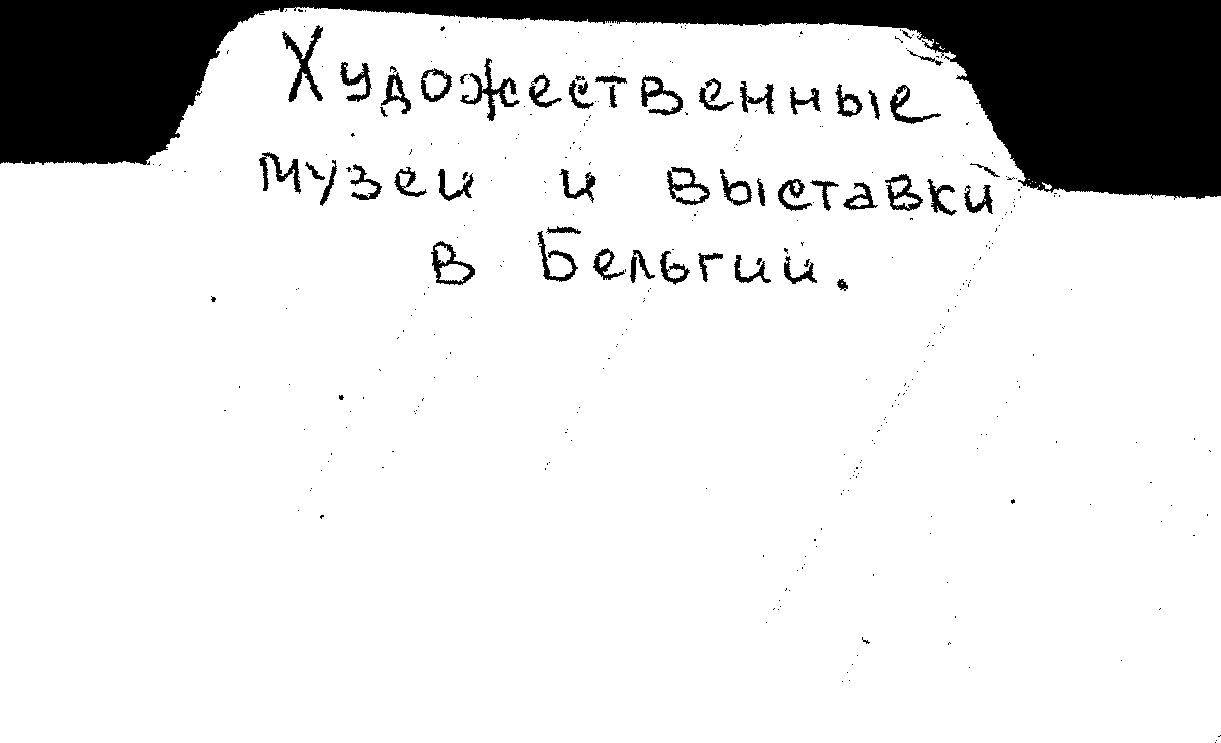 Художественные
музеи и выставки
в Бельгии.